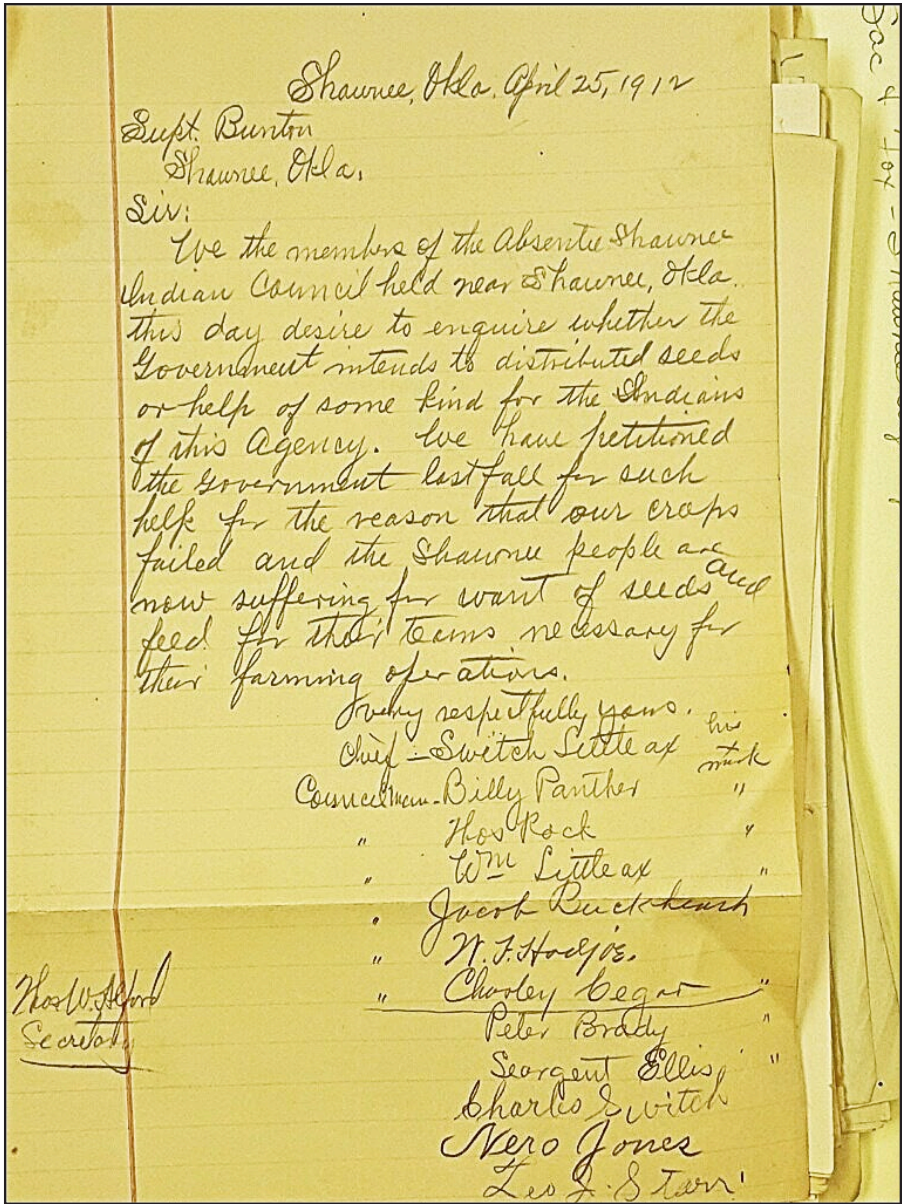 Shawnee, Okla. April 25, 1912
Supt. Buntin
Shawnee, Okla.
Sir:
We the members of the Absentee Shawnee
Indian Council held near Shawnee, Okla.
this day desire to enquire whether the
Government intends to distributed seeds
or help of some kind for the Indians
of this Agency. We have petitioned
the Government last fall for such
help for the reason that our crops
failed and the Shawnee people are
now suffering for want of seeds and
feed for their teams necessary for
their farming operations.
Very respectfully yours.
Chief - Switch Little ax his mark
Councilmen - Billy Panther "
" Thos Rock "
" Wm Little ax "
" Jacob Buckheart
" W. F. Hodjoe.
" Charley Cegar "
Peter Brady "
Seargent Ellis "
Charles Switch
Nero Jones
Leo J. Starr
Thos W. Alford
Secretary
Sac & Fox - Shawnee